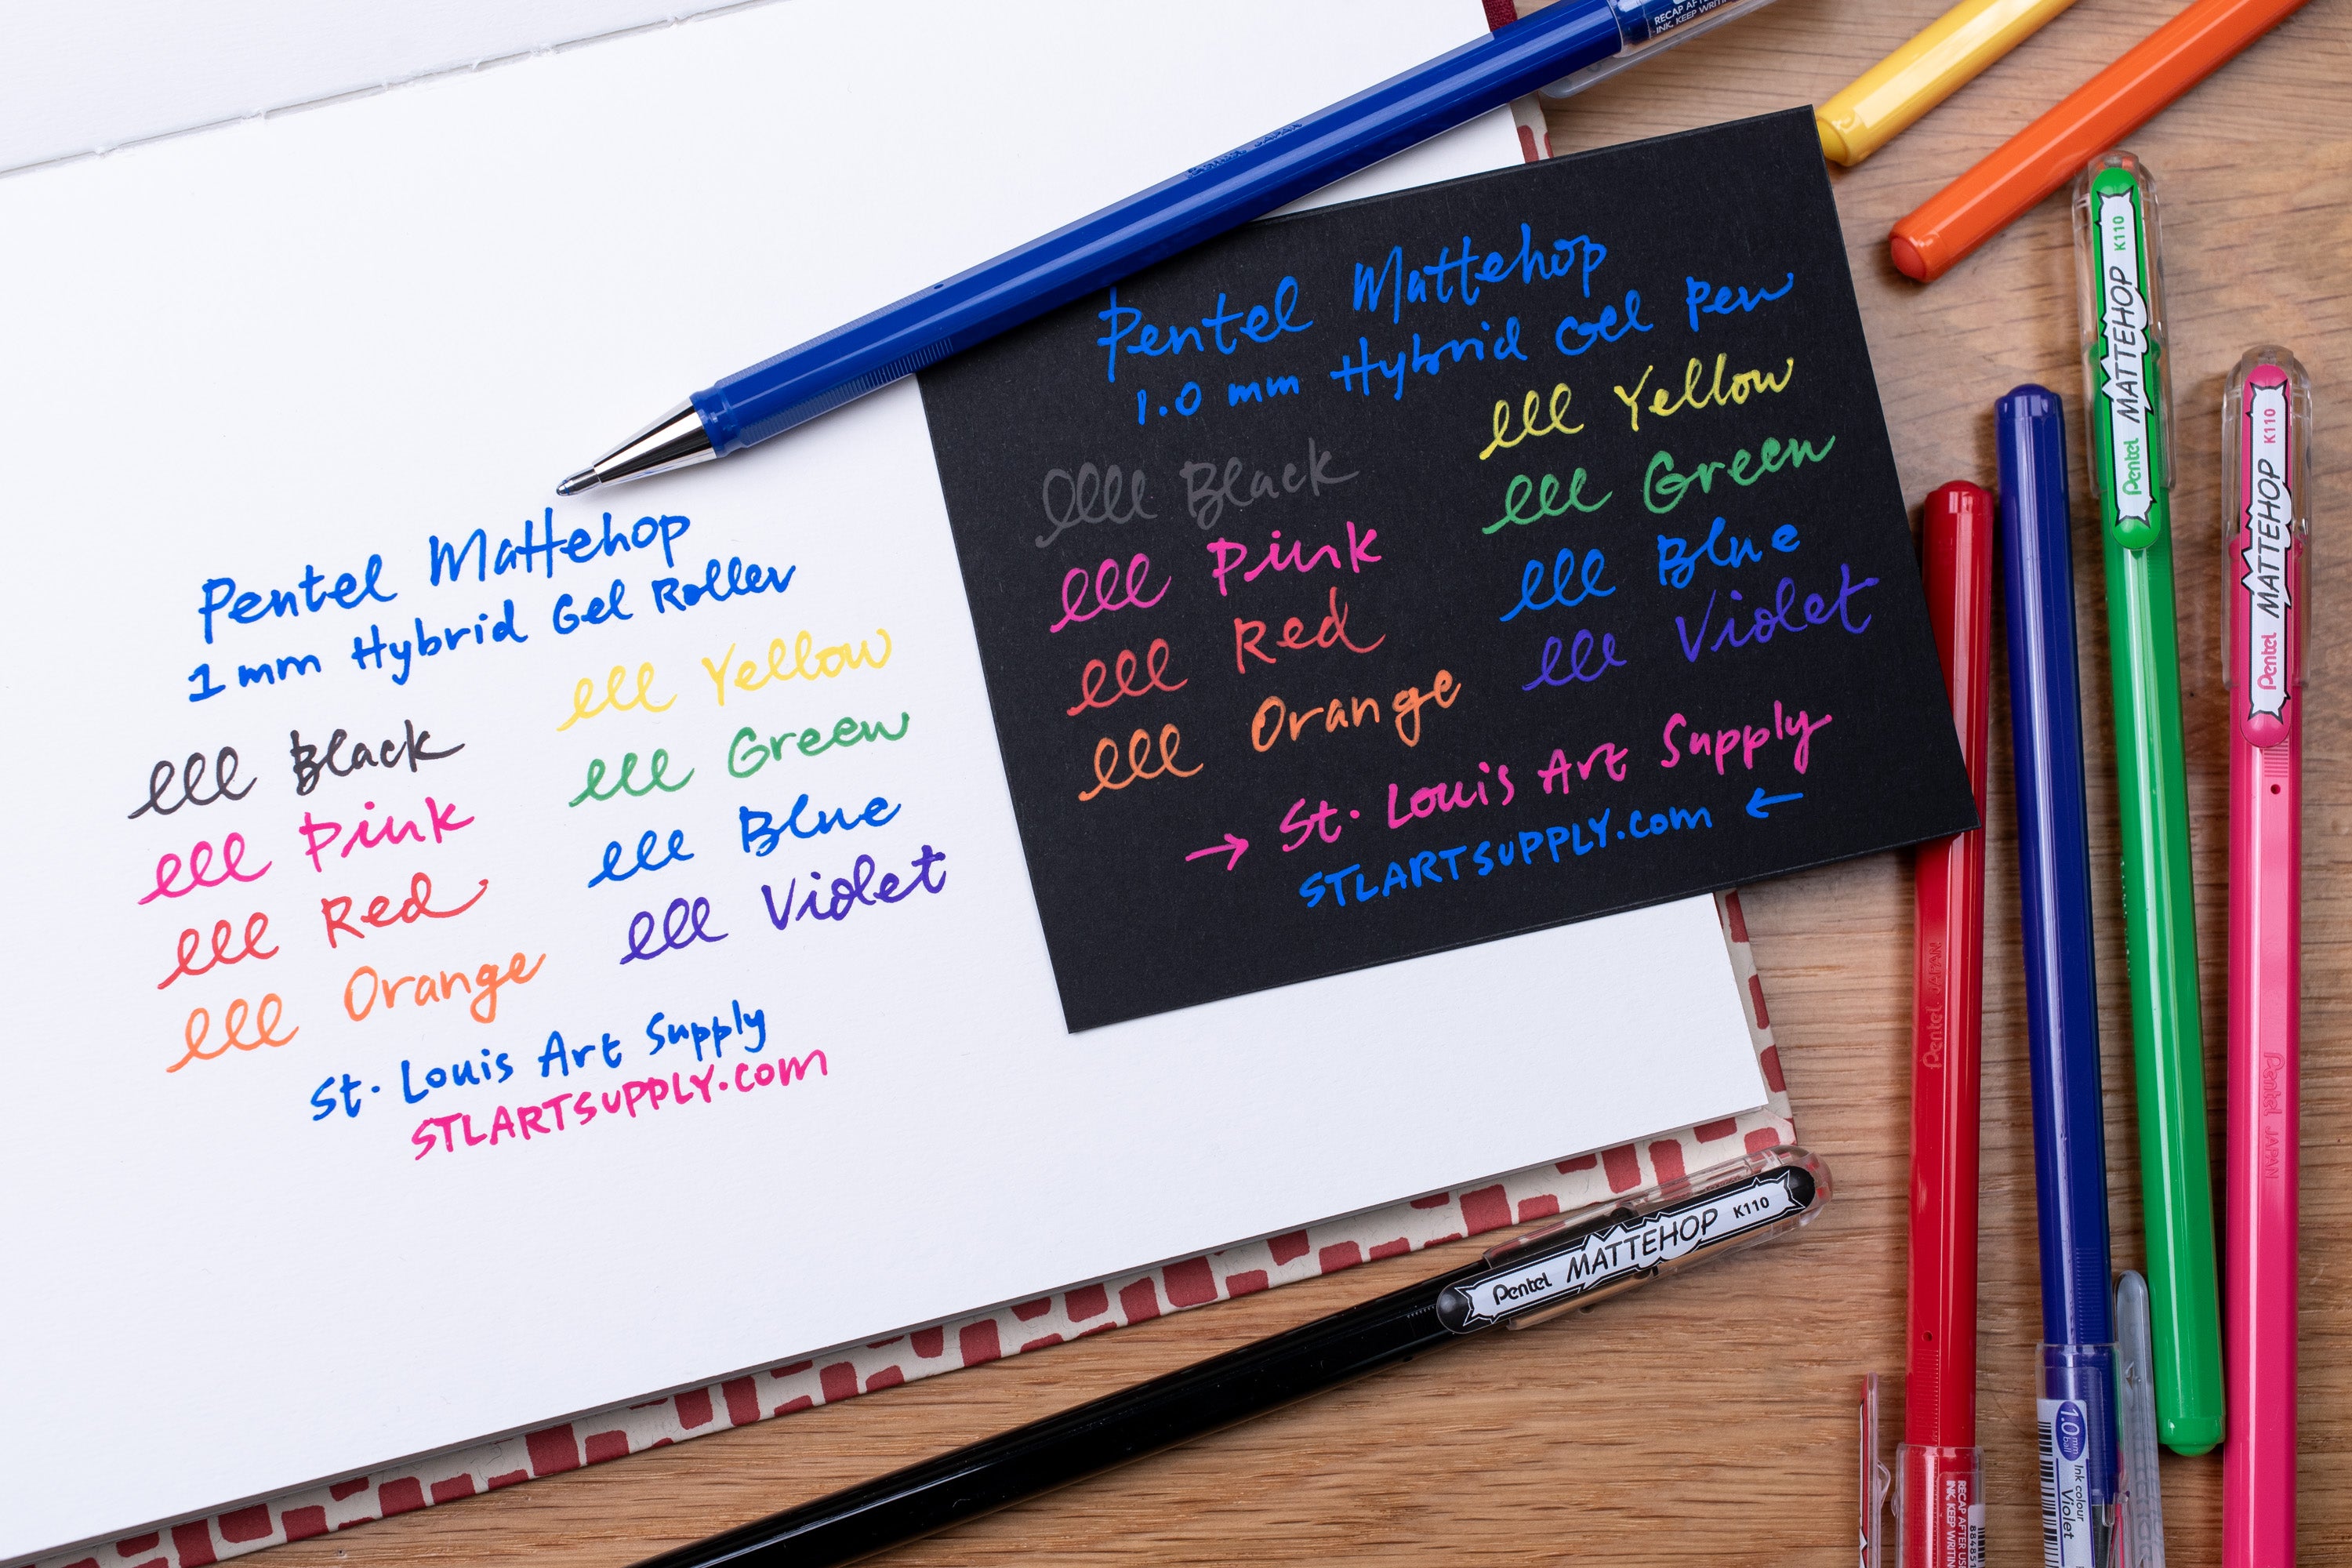 Pentel Mattehop
1 mm Hybrid Gel Roller
lll Black
lll Pink
lll Red
lll Orange
lll Yellow
lll Green
lll Blue
lll Violet
St. Louis Art Supply
STLARTSUPPLY.com
Pentel Mattehop
1.0 mm Hybrid Gel Pen
llll Black
lll Pink
lll Red
lll Orange
lll Yellow
lll Green
lll Blue
lll Violet
→ St. Louis Art Supply
STLARTSUPPLY.com ←
Pentel MATTEHOP K110
Pentel MATTEHOP K110
Pentel MATTEHOP K110
Pentel JAPAN
Pentel JAPAN
1.0 mm ball
Ink colour
Violet
RECAP AFTER
INK, KEEP